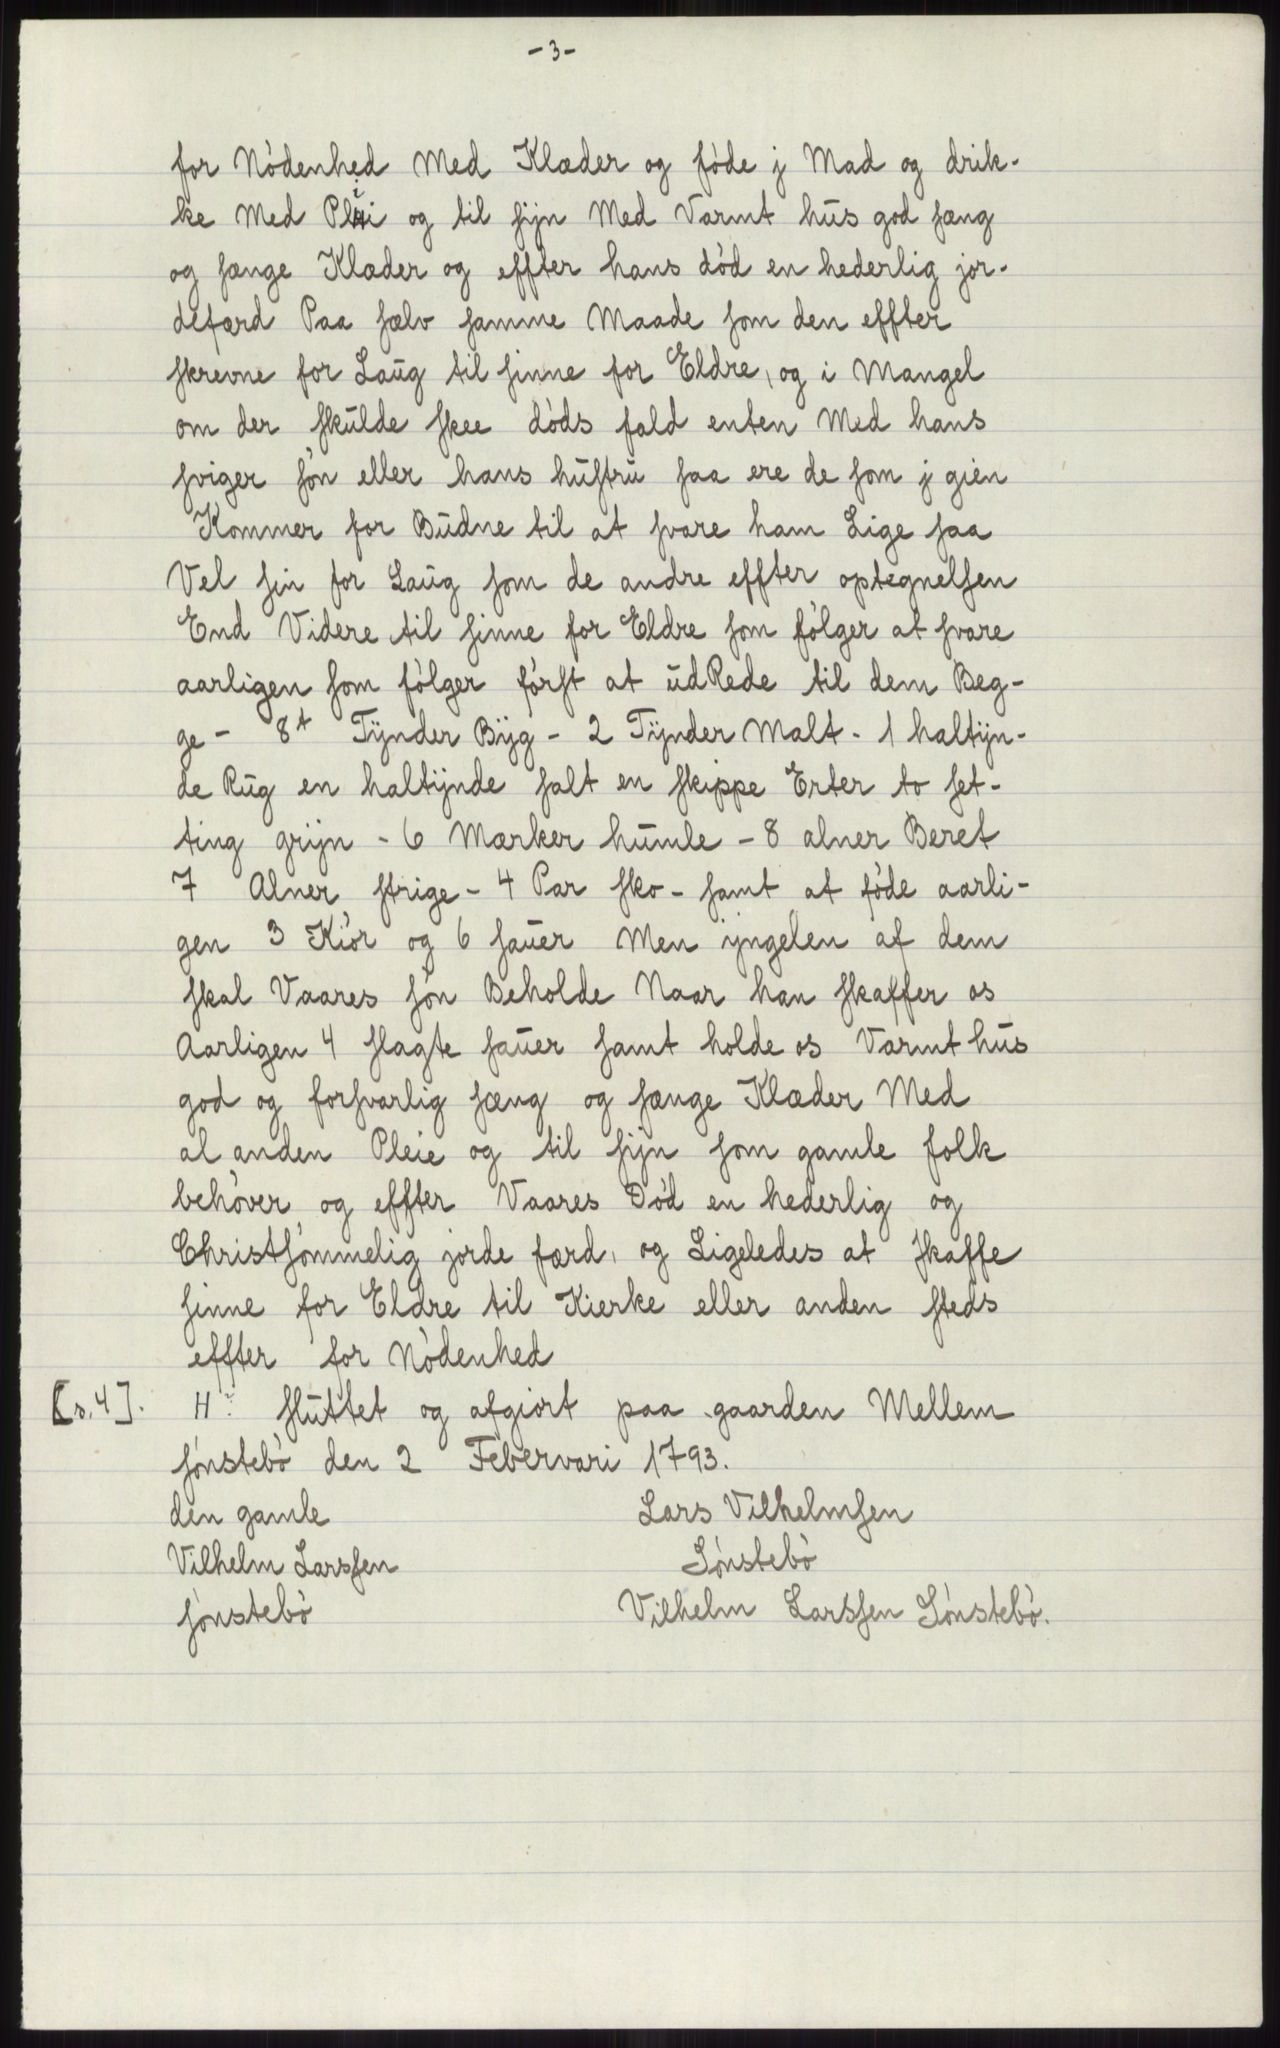 -3-
for Nödenhed Med Klæder og föde j Mad og drik-
ke Med Pleii og til sijn Med Varmt hus god sæng
og sænge Klæder og effter hans död en hederlig jor-
defærd Paa sælv samme Maade som den effter
skrevne for Laug til sinne for Eldre, og i Mangel
om der skulde skee döds fald enten Med hans
sviger sön eller hans hustru saa ere de som j gien
Kommer for Budne til at svare ham Lige saa
Vel sin for Laug som de andre effter optegnelsen
End Videre til sinne for Eldre som fölger at svare
aarligen som fölger först at udRede til dem Beg-
ge - 8t Tÿnder Bÿg - 2 Tijnder Malt - 1 haltijn-
de Rug en haltijnde salt en skippe Erter to set-
ting grijn - 6 Mærker humle - 8 alner Beret
7 Alner strige - 4 Par sko - samt at föde aarli-
gen 3 Kiör og 6 sauer Men ijngelen af dem
skal Vaares sön Beholde Naar han skaffer os
Aarligen 4 slagte sauer samt holde os Varmt hus
god og forsvarlig sæng og sænge Klæder Med
al anden Pleie og til sijn som gamle folk
behöver og effter Vaares Död en hederlig og
Christsömmelig jorde færd, og Ligeledes at skaffe
sinne for Eldre til Kierke eller anden steds
effter for Nödenhed
[s. 4]. H: sluttet og afgiort paa gaarden Mellem
sönstebö den 2 Febervari 1793.
den gamle Lars Vilhelmsen
Vilhelm Larssen Sönstebö
sönstebö Vilhelm Larssen Sönstebö.